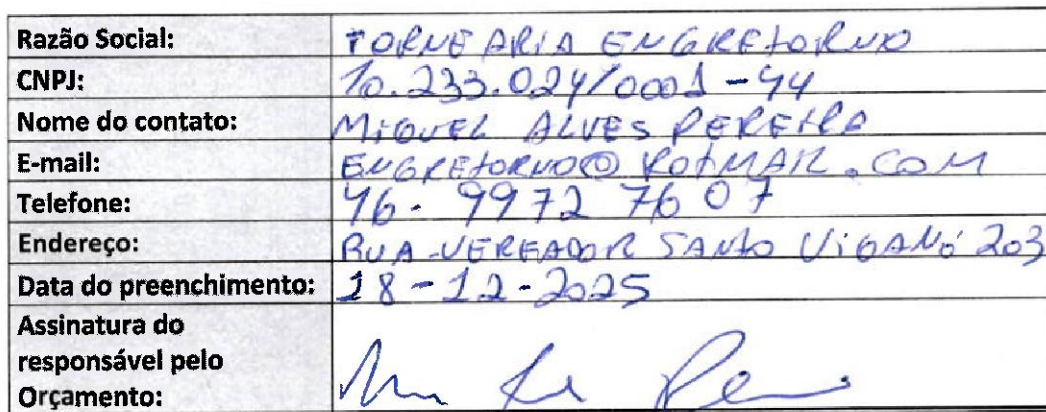 Razão Social: TORNEARIA ENGRETORNO
CNPJ: 10.233.024/0001-94
Nome do contato: MIGUEL ALVES PEREIRA
E-mail: ENGRETORNO@HOTMAIL.COM
Telefone: 46. 9972 7607
Endereço: RUA-VEREADOR SANTO VIGANÓ 203
Data do preenchimento: 18-12-2025
Assinatura do
responsável pelo
Orçamento: